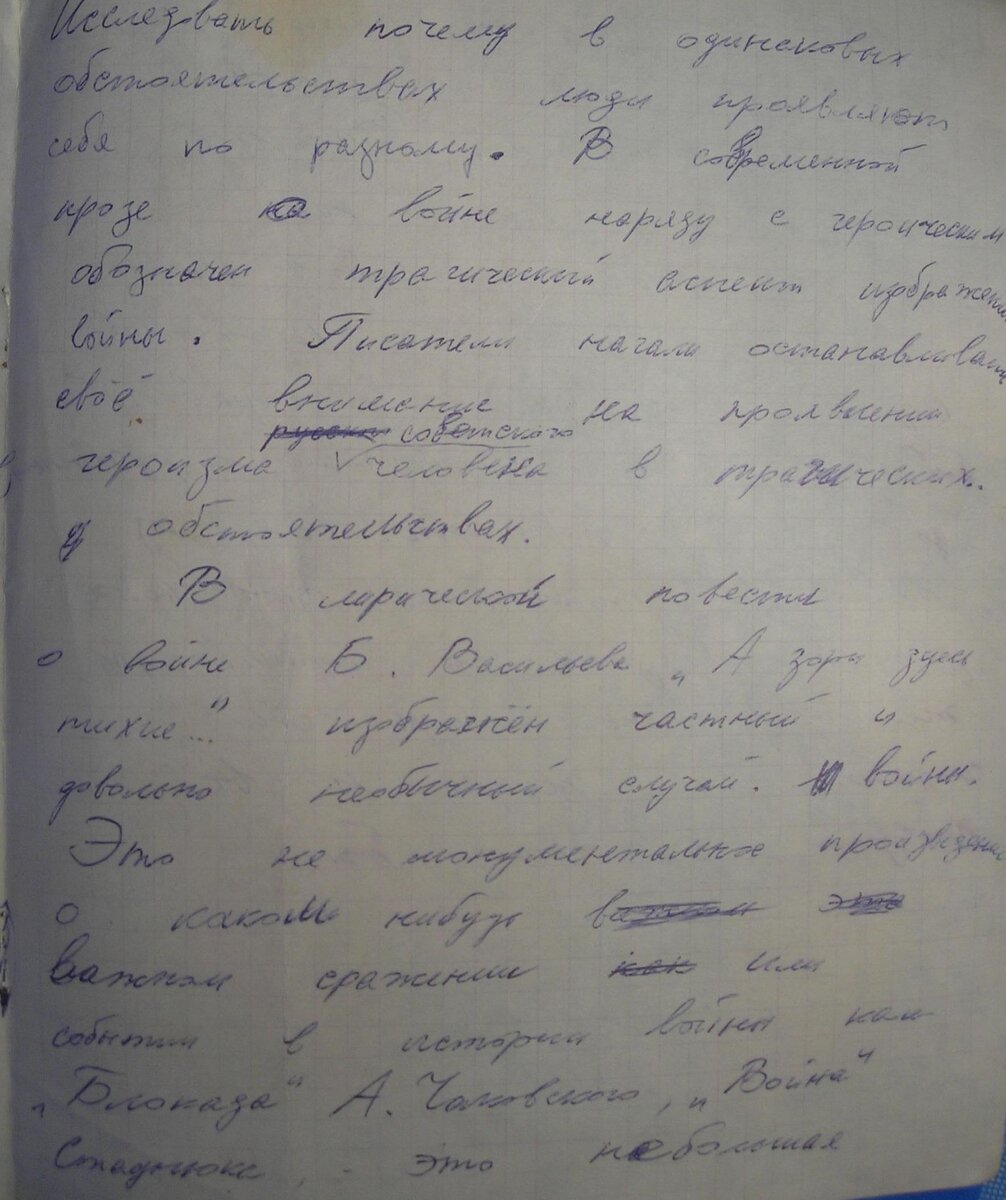 Исследовать почему в одинаковых
обстоятельствах люди проявляют
себя по разному. В современной
прозе о войне наряду с героическим
обозначен трагический аспект изображения
войны. Писатели начали останавливать
своё внимание на проявлении
русский советского
героизма человека в трагических
обстоятельствах.
В лирической повести
о войне Б. Васильева „А зори здесь
тихие..." изображён частный и
довольно необычный случай войны.
Это не монументальное произведение
о каком нибудь важном это
важном сражении как или
событии в истории войны как
„Блокада" А. Чаковского, „Война"
Стаднюка, - это небольшая